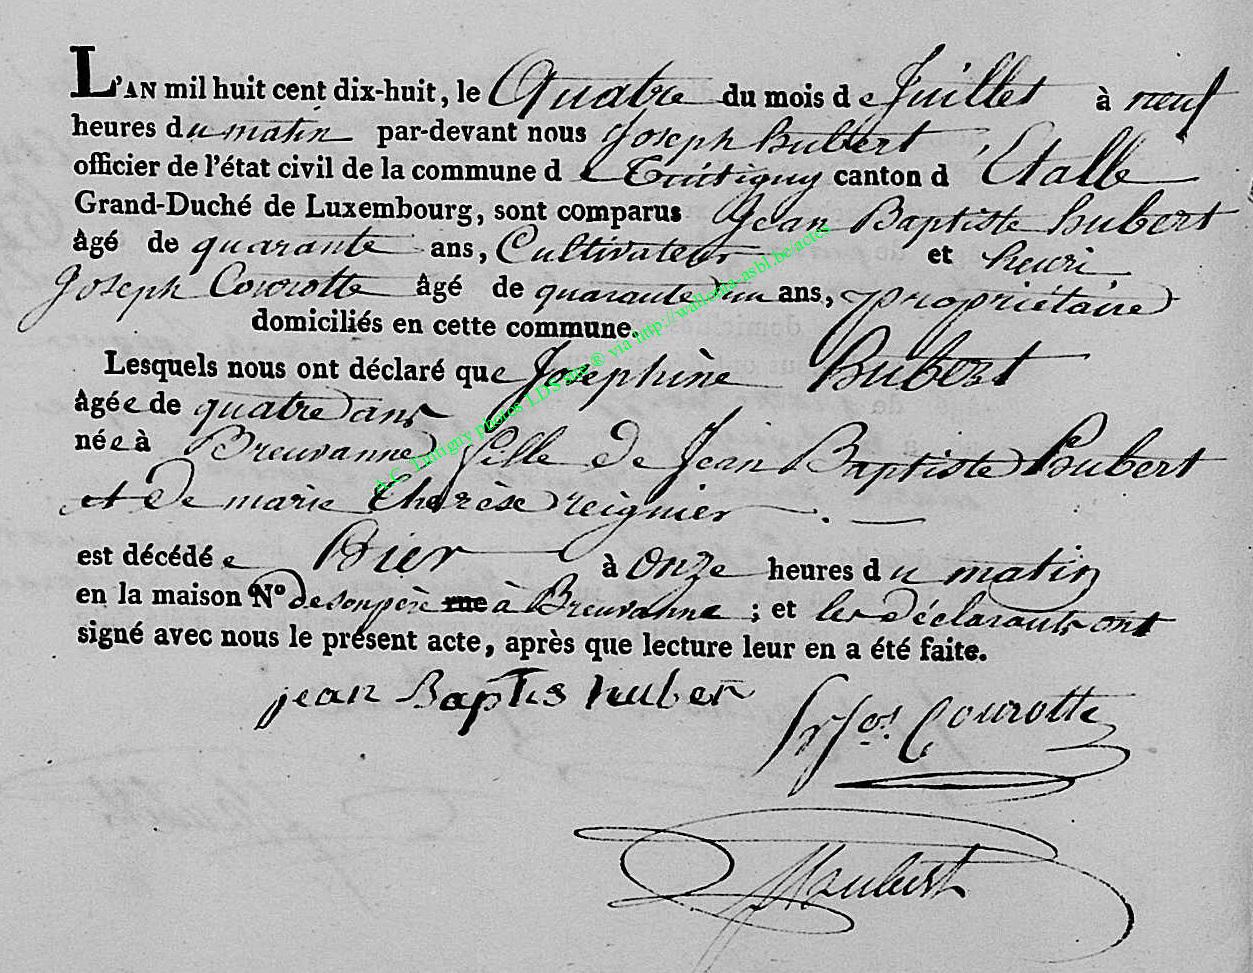 L'AN mil huit cent dix-huit, le Quatre du mois de Juillet à neuf
heures du matin par-devant nous Joseph hubert,
officier de l'état civil de la commune de Tintigny canton d'Etalle
Grand-Duché de Luxembourg, sont comparus Jean Baptiste hubert
âgé de quarante ans, Cultivateur et henri
Joseph Courotte âgé de quarante un ans, propriétaire
domiciliés en cette commune.
Lesquels nous ont déclaré que Josephine Hubert
âgée de quatre ans
née à Breuvanne fille de Jean Baptiste Hubert
et de marie therèse reignier
est décédée hier à onze heures du matin
en la maison N° de son père rue à Breuvanne ; et les déclarants ont
signé avec nous le présent acte, après que lecture leur en a été faite.
jean Baptis huber
Jos. Courotte
Hubert
A.C. Tintigny photos LDS site ® via http://wallonia-asbl.be/actes